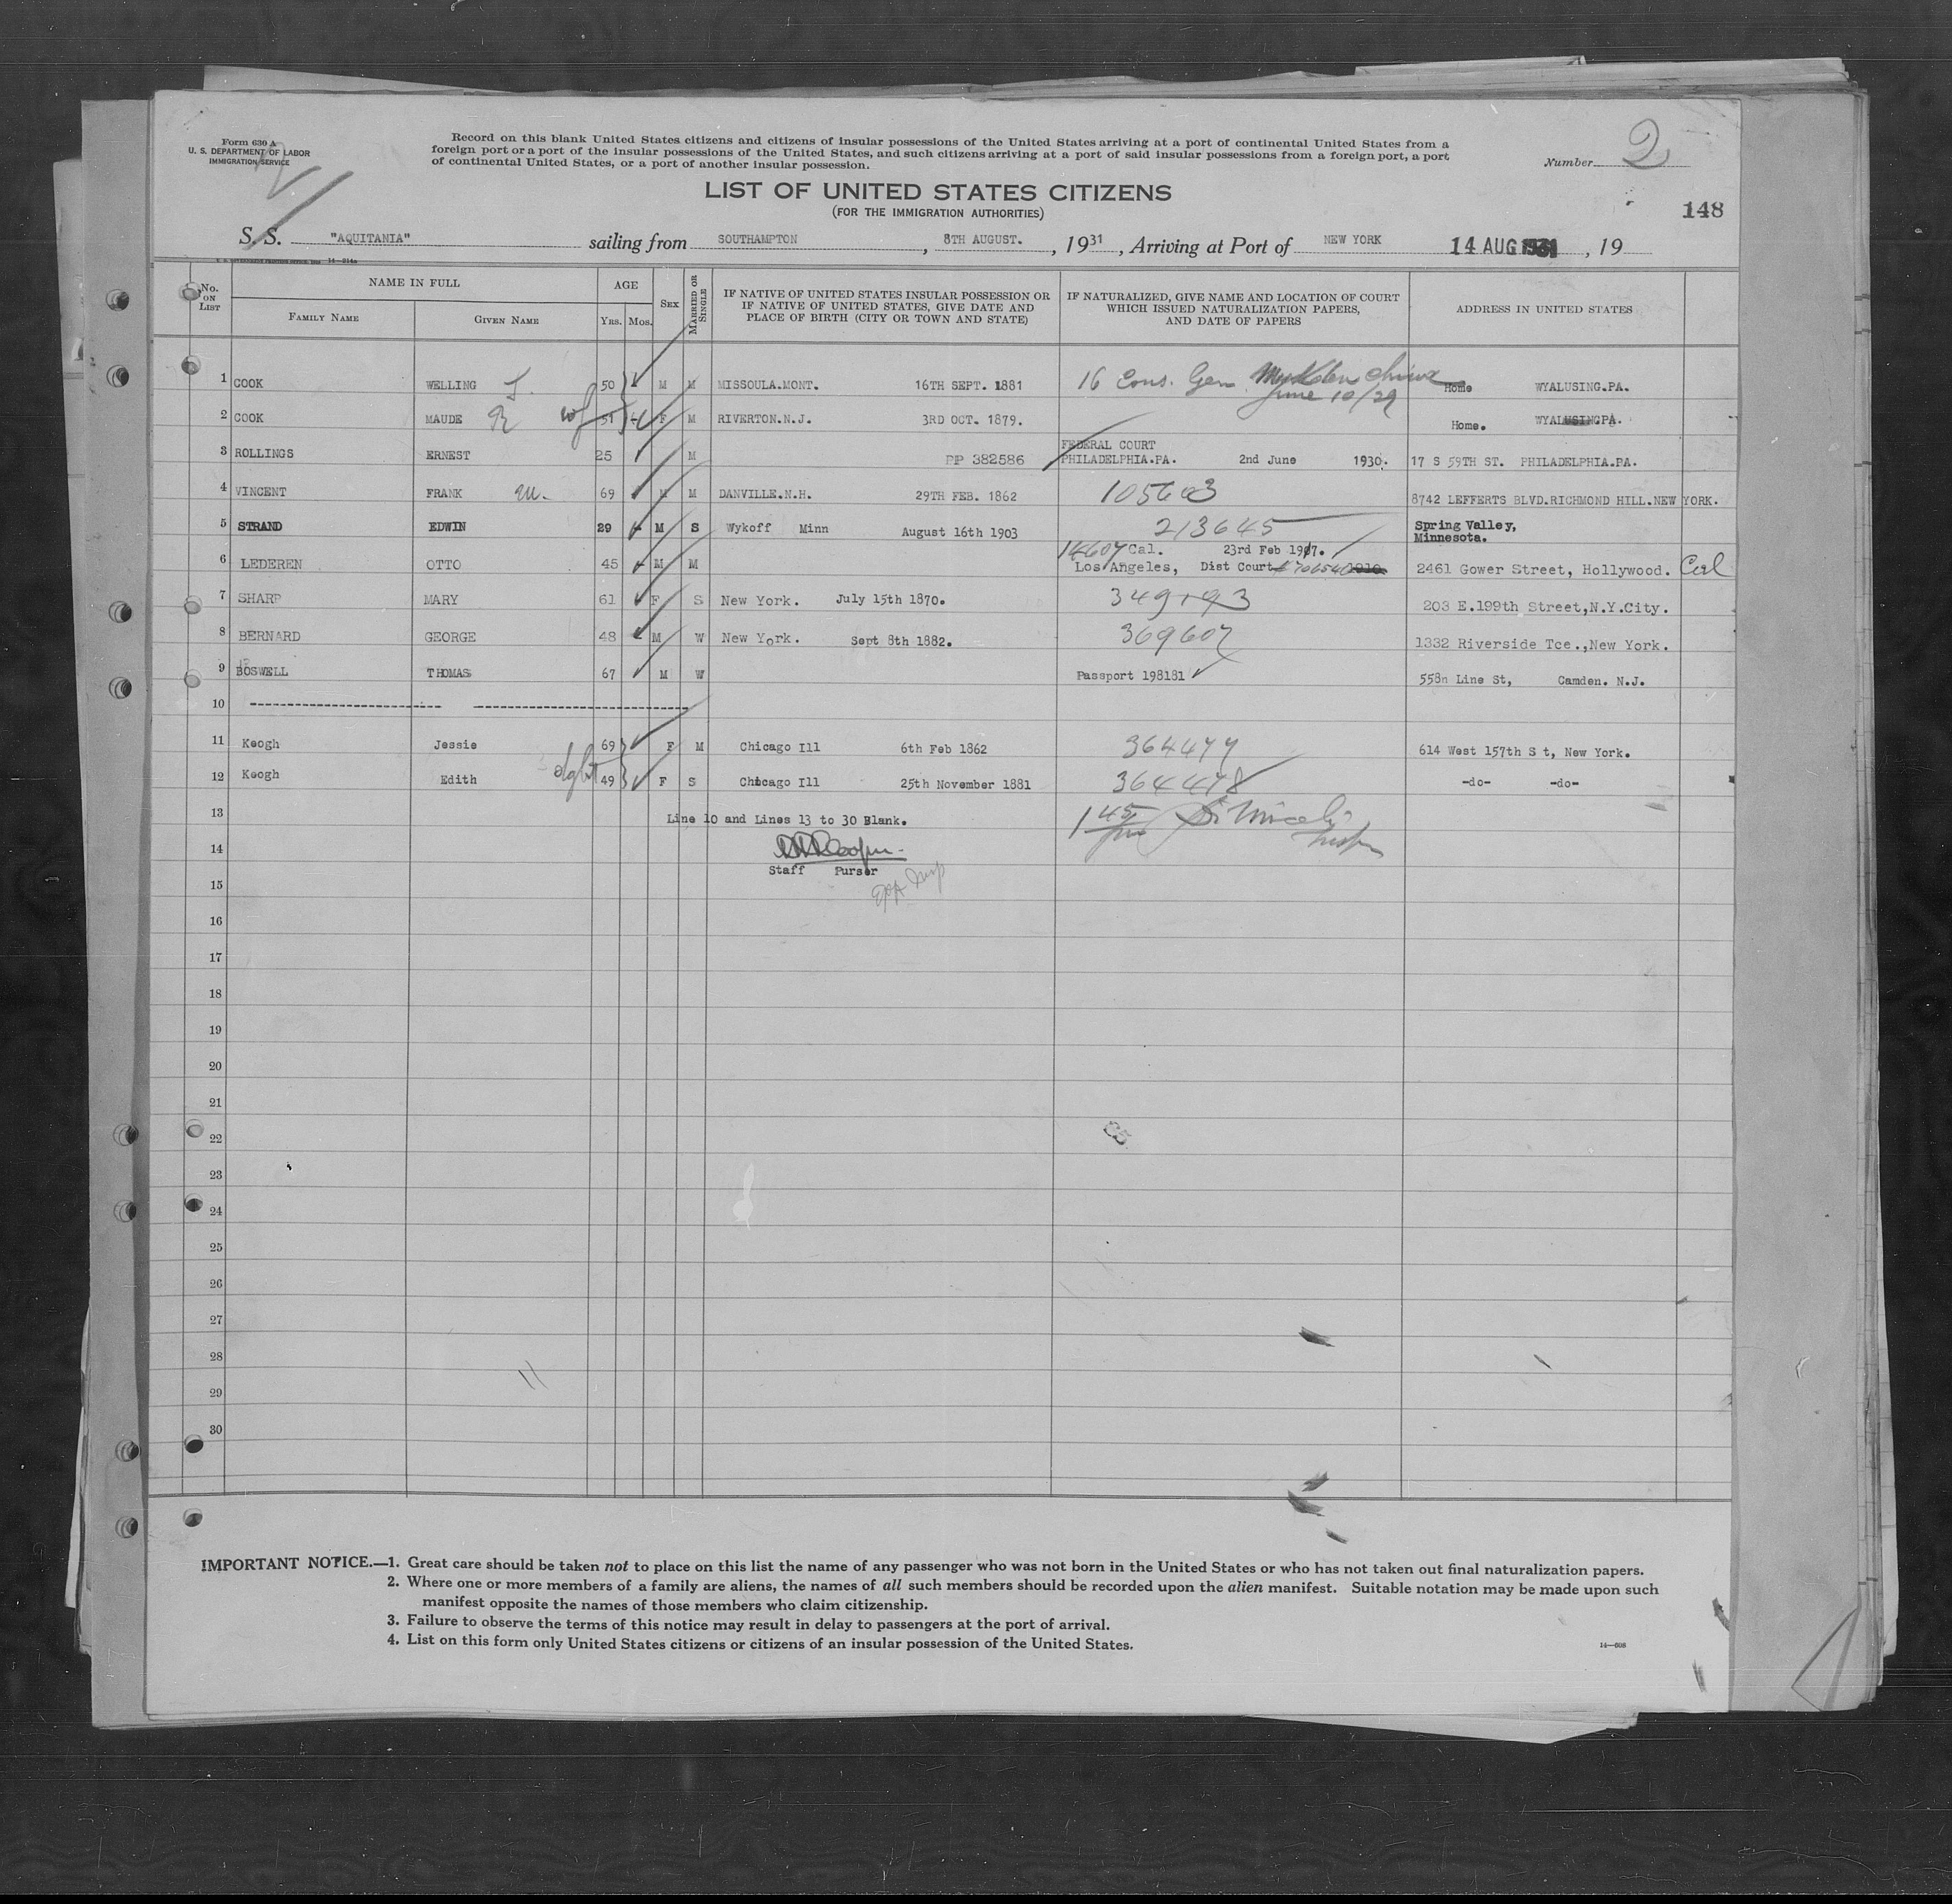 Form 630 A
U. S. DEPARTMENT OF LABOR
IMMIGRATION SERVICE
Record on this blank United States citizens and citizens of insular possessions of the United States arriving at a port of continental United States from a
foreign port or a port of the insular possessions of the United States, and such citizens arriving at a port of said insular possessions from a foreign port, a port
of continental United States, or a port of another insular possession.
Number 2
LIST OF UNITED STATES CITIZENS
(FOR THE IMMIGRATION AUTHORITIES)
148
S. S. "AQUITANIA" sailing from SOUTHAMPTON, 8TH AUGUST., 1931, Arriving at Port of NEW YORK 14 AUG 1931, 19
No. ON LIST NAME IN FULL AGE SEX MARRIED OR SINGLE IF NATIVE OF UNITED STATES INSULAR POSSESSION OR IF NATIVE OF UNITED STATES, GIVE DATE AND PLACE OF BIRTH (CITY OR TOWN AND STATE) IF NATURALIZED, GIVE NAME AND LOCATION OF COURT WHICH ISSUED NATURALIZATION PAPERS, AND DATE OF PAPERS ADDRESS IN UNITED STATES
FAMILY NAME GIVEN NAME YRS. MOS.
1 COOK WELLING J. 50 M M MISSOULA.MONT. 16TH SEPT. 1881 16 Cons. Gen. Mukden China June 10/29 Home WYALUSING.PA.
2 COOK MAUDE R wf 51 F M RIVERTON.N.J. 3RD OCT. 1879. Home. WYALUSINGPA.
3 ROLLINGS ERNEST 25 M PP 382586 FEDERAL COURT PHILADELPHIA.PA. 2nd June 1930. 17 S 59TH ST. PHILADELPHIA.PA.
4 VINCENT FRANK M. 69 M M DANVILLE.N.H. 29TH FEB. 1862 105603 8742 LEFFERTS BLVD.RICHMOND HILL.NEW YORK.
5 STRAND EDWIN 29 M S Wykoff Minn August 16th 1903 213645 Spring Valley, Minnesota.
6 LEDEREN OTTO 45 M M 14607 Cal. 23rd Feb 1917. Los Angeles, Dist Court 2461 Gower Street, Hollywood. Cal
7 SHARP MARY 61 F S New York. July 15th 1870. 349193 203 E.199th Street,N.Y.City.
8 BERNARD GEORGE 48 M W New York. Sept 8th 1882. 369607 1332 Riverside Tce.,New York.
9 BOSWELL THOMAS 67 M W Passport 198181 558n Line St, Camden. N.J.
10
11 Keogh Jessie 69 F M Chicago Ill 6th Feb 1862 364477 614 West 157th S t, New York.
12 Keogh Edith dght 49 F S Chicago Ill 25th November 1881 364478 -do- -do-
13 Line 10 and Lines 13 to 30 Blank.
14
Staff Purser
15
16
17
18
19
20
21
22
23
24
25
26
27
28
29
30
IMPORTANT NOTICE.—1. Great care should be taken not to place on this list the name of any passenger who was not born in the United States or who has not taken out final naturalization papers.
2. Where one or more members of a family are aliens, the names of all such members should be recorded upon the alien manifest. Suitable notation may be made upon such
manifest opposite the names of those members who claim citizenship.
3. Failure to observe the terms of this notice may result in delay to passengers at the port of arrival.
4. List on this form only United States citizens or citizens of an insular possession of the United States.
14—608